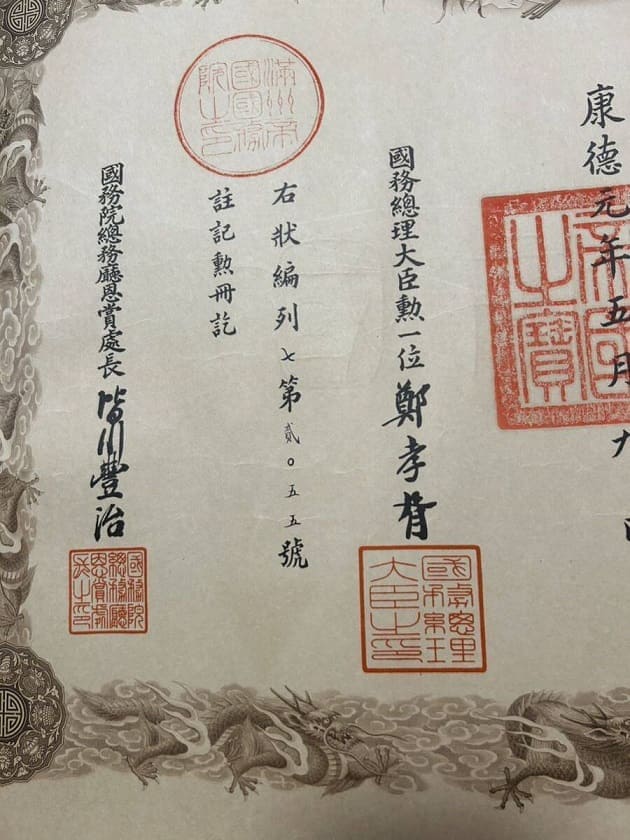 康德元年五月九
帝國
之寶
國務總理大臣勲一位鄭孝胥
國務總理
大臣之印
右狀編列七第貳〇五五號
註記勲冊訖
滿州帝
國國務
院之印
國務院總務廳恩賞處長皆川豐治
國務院
總務廳
恩賞處
長之印